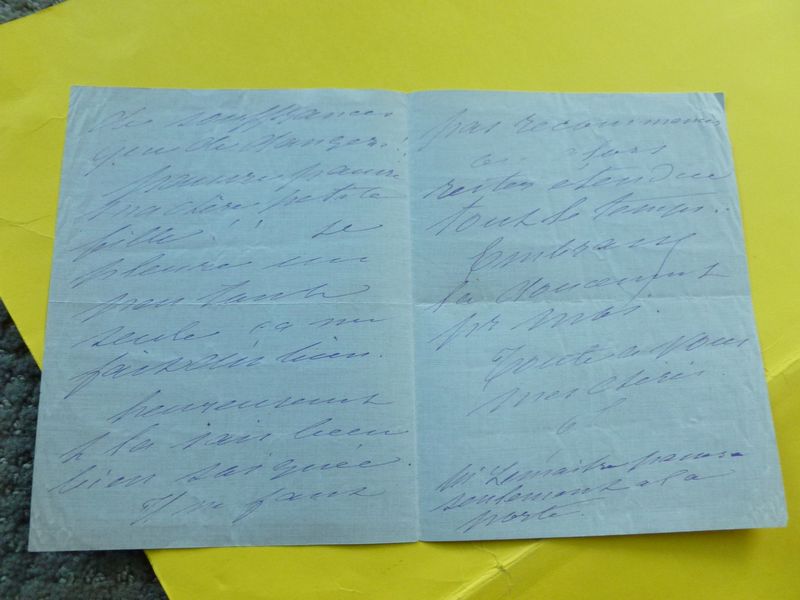 de souffrances
que de danger!
pauvre pauvre
ma chère petite
fille! je
pleure un
peu toute
seule ça me
fait du bien.
heureusement
je la sais bien
bien soignée.
Il ne faut
pas recommencer
alors
rester étendue
tout le temps.
Embrassez
la doucement
pr moi.
Toute à vous
mes chéris
Mr Lemaitre passera
seulement à la
porte.